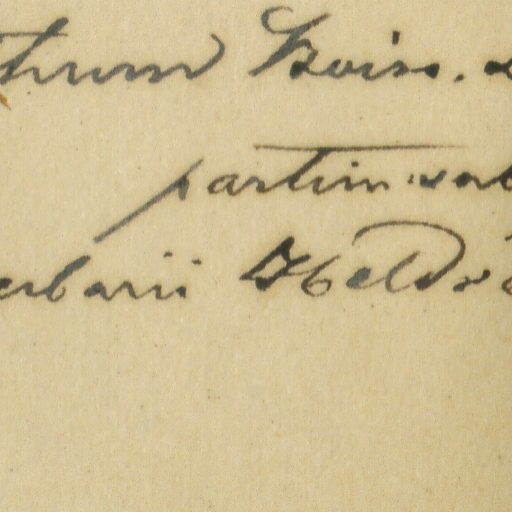 thrum Boiss.
partim
erbarii Heldr